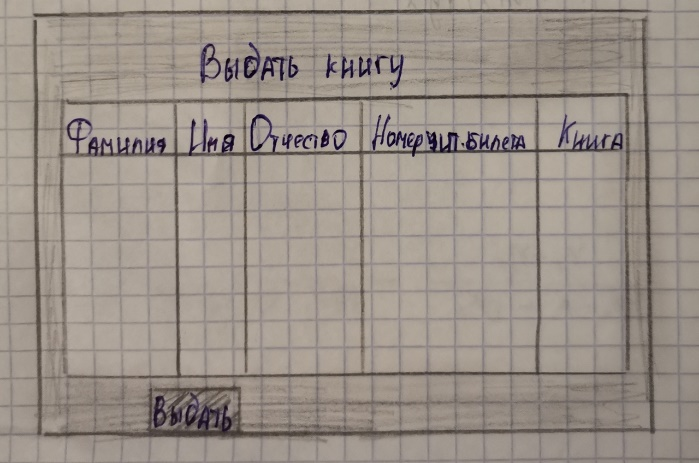 Выдать книгу
Фамилия Имя Отчество Номер чит. билета Книга
Выдать